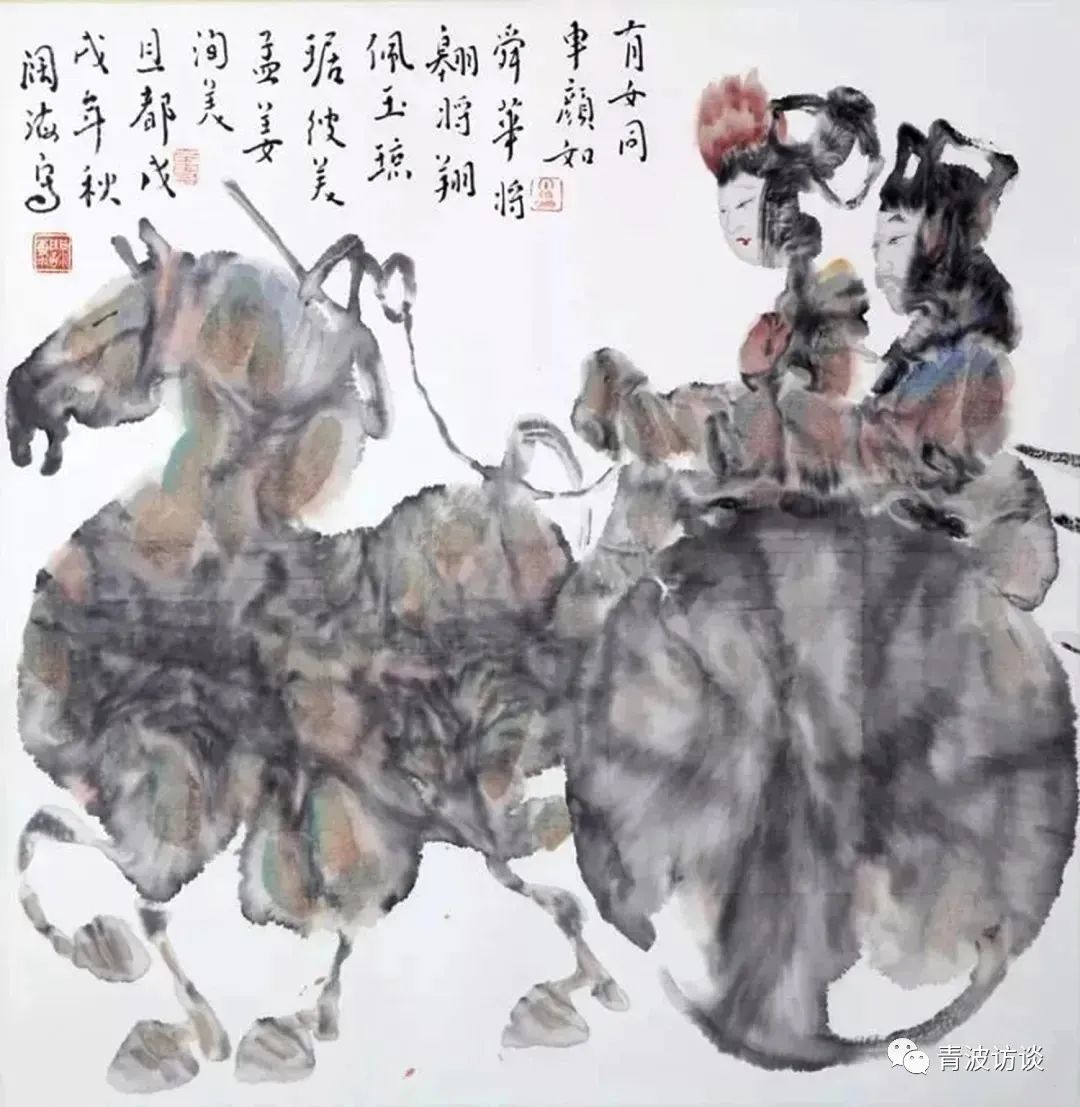 有女同
車顏如
舜華将
翱将翔
佩玉琼
琚彼美
孟姜
洵美
且都戊
戌年秋
阔海写
青波访谈